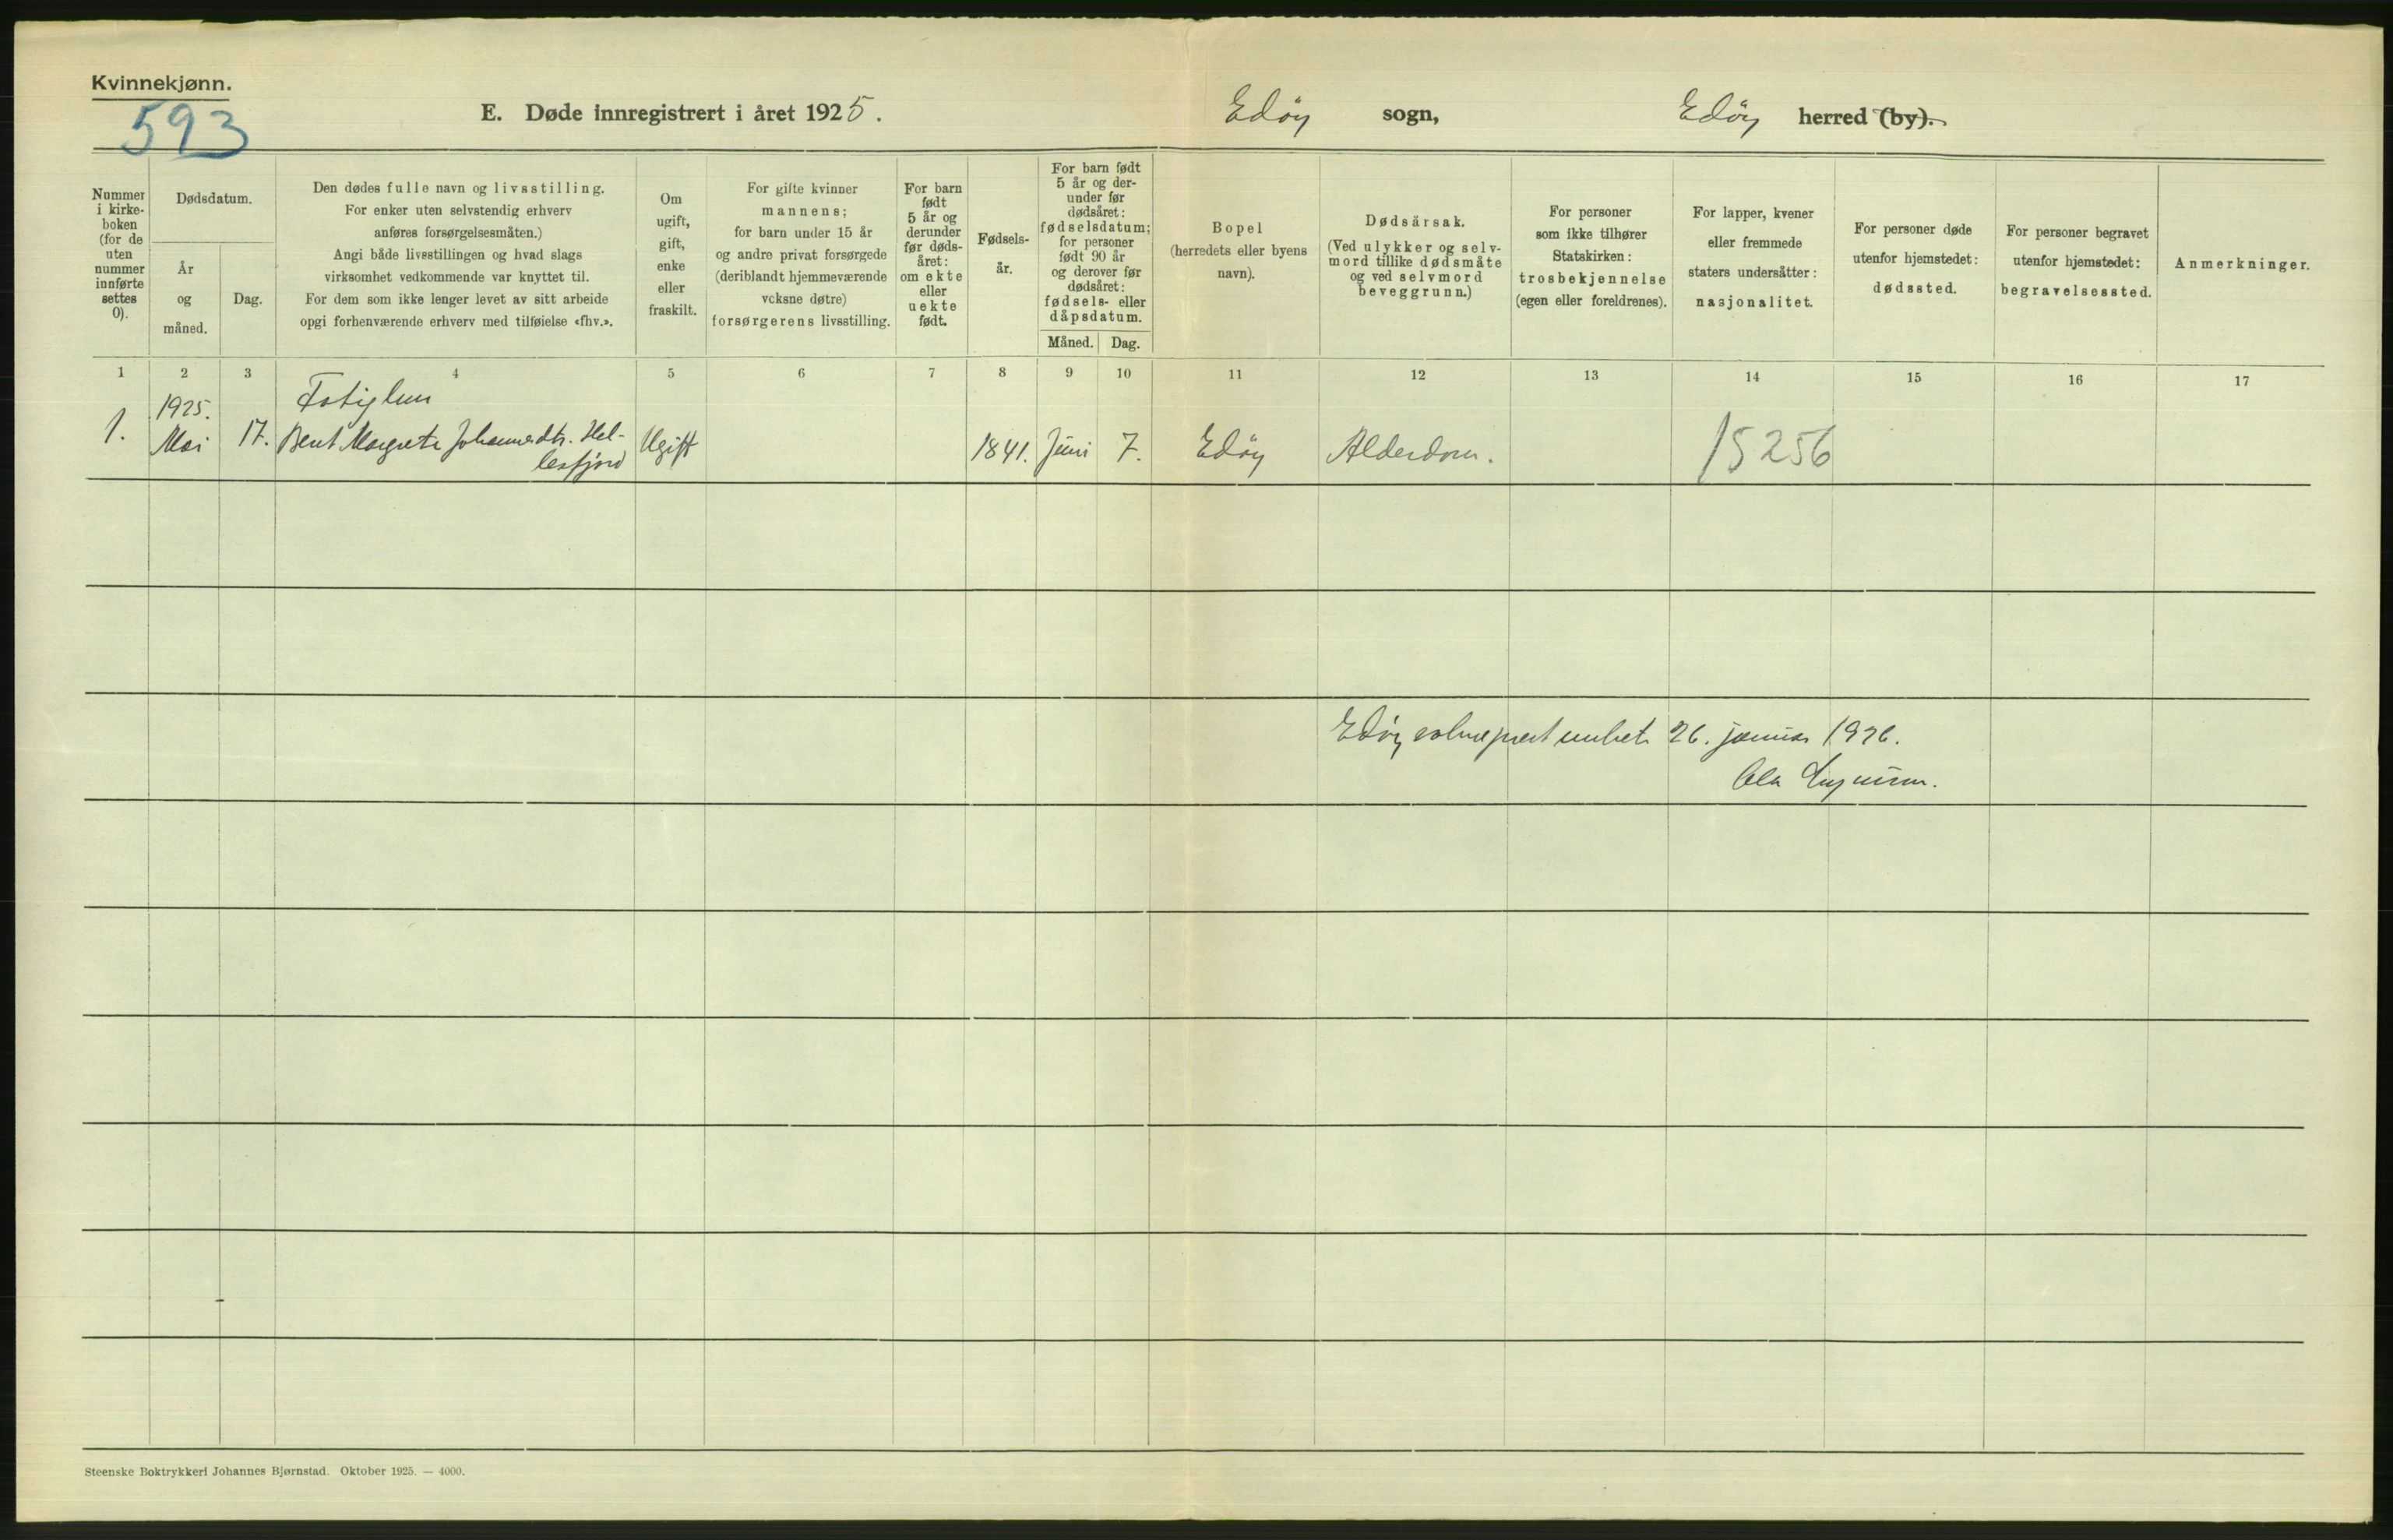 Kvinnekjønn.
593
E. Døde innregistrert i året 1925.
Edöy sogn,
Edöy herred (by).
Nummer i kirke- boken (for de uten nummer innførte settes 0).
Dødsdatum.
År og måned.
Dag.
Den dødes fulle navn og livsstilling.
For enker uten selvstendig erhverv
anføres forsørgelsesmåten.)
Angi både livsstillingen og hvad slags
virksomhet vedkommende var knyttet til.
For dem som ikke lenger levet av sitt arbeide
opgi forhenværende erhverv med tilføielse «fhv.».
Om
ugift,
gift,
enke
eller
fraskilt.
For gifte kvinner
mannens;
for barn under 15 år
og andre privat forsørgede
(deriblandt hjemmeværende
vcksne døtre)
forsørgerens livsstilling.
For barn
født
5 år og
derunder
før døds-
året:
om ekte
eller
uekte
født.
Fødsels-
år.
For barn født
5 år og der-
under før
dødsåret:
fødselsdatum;
for personer
født 90 år
og derover før
dødsåret:
fødsels- eller
dåpsdatum.
Måned. Dag.
Bopel
(herredets eller byens
navn).
Dødsårsak.
(Ved ulykker og selv-
mord tillike dødsmåte
og ved selvmord
beveggrunn.)
For personer
som ikke tilhører
Statskirken:
trosbekjennelse
(egen eller foreldrenes).
For lapper, kvener
eller fremmede
staters undersåtter:
nasjonalitet.
For personer døde
utenfor hjemstedet:
dødssted.
For personer begravet
utenfor hjemstedet:
begravelsessted.
Anmerkninger.
1 2 3 4 5 6 7 8 9 10 11 12 13 14 15 16 17
1925.
1. Mai 17. Berit Margrete Johannesdtr. Hel- Ugift 1841. Juni 7. Edöy Alderdom. 15256
lesfjord
Edöy sokneprestembete 26. januar 1926.
Steenske Boktrykkeri Johannes Bjørnstad. Oktober 1925. — 4000.